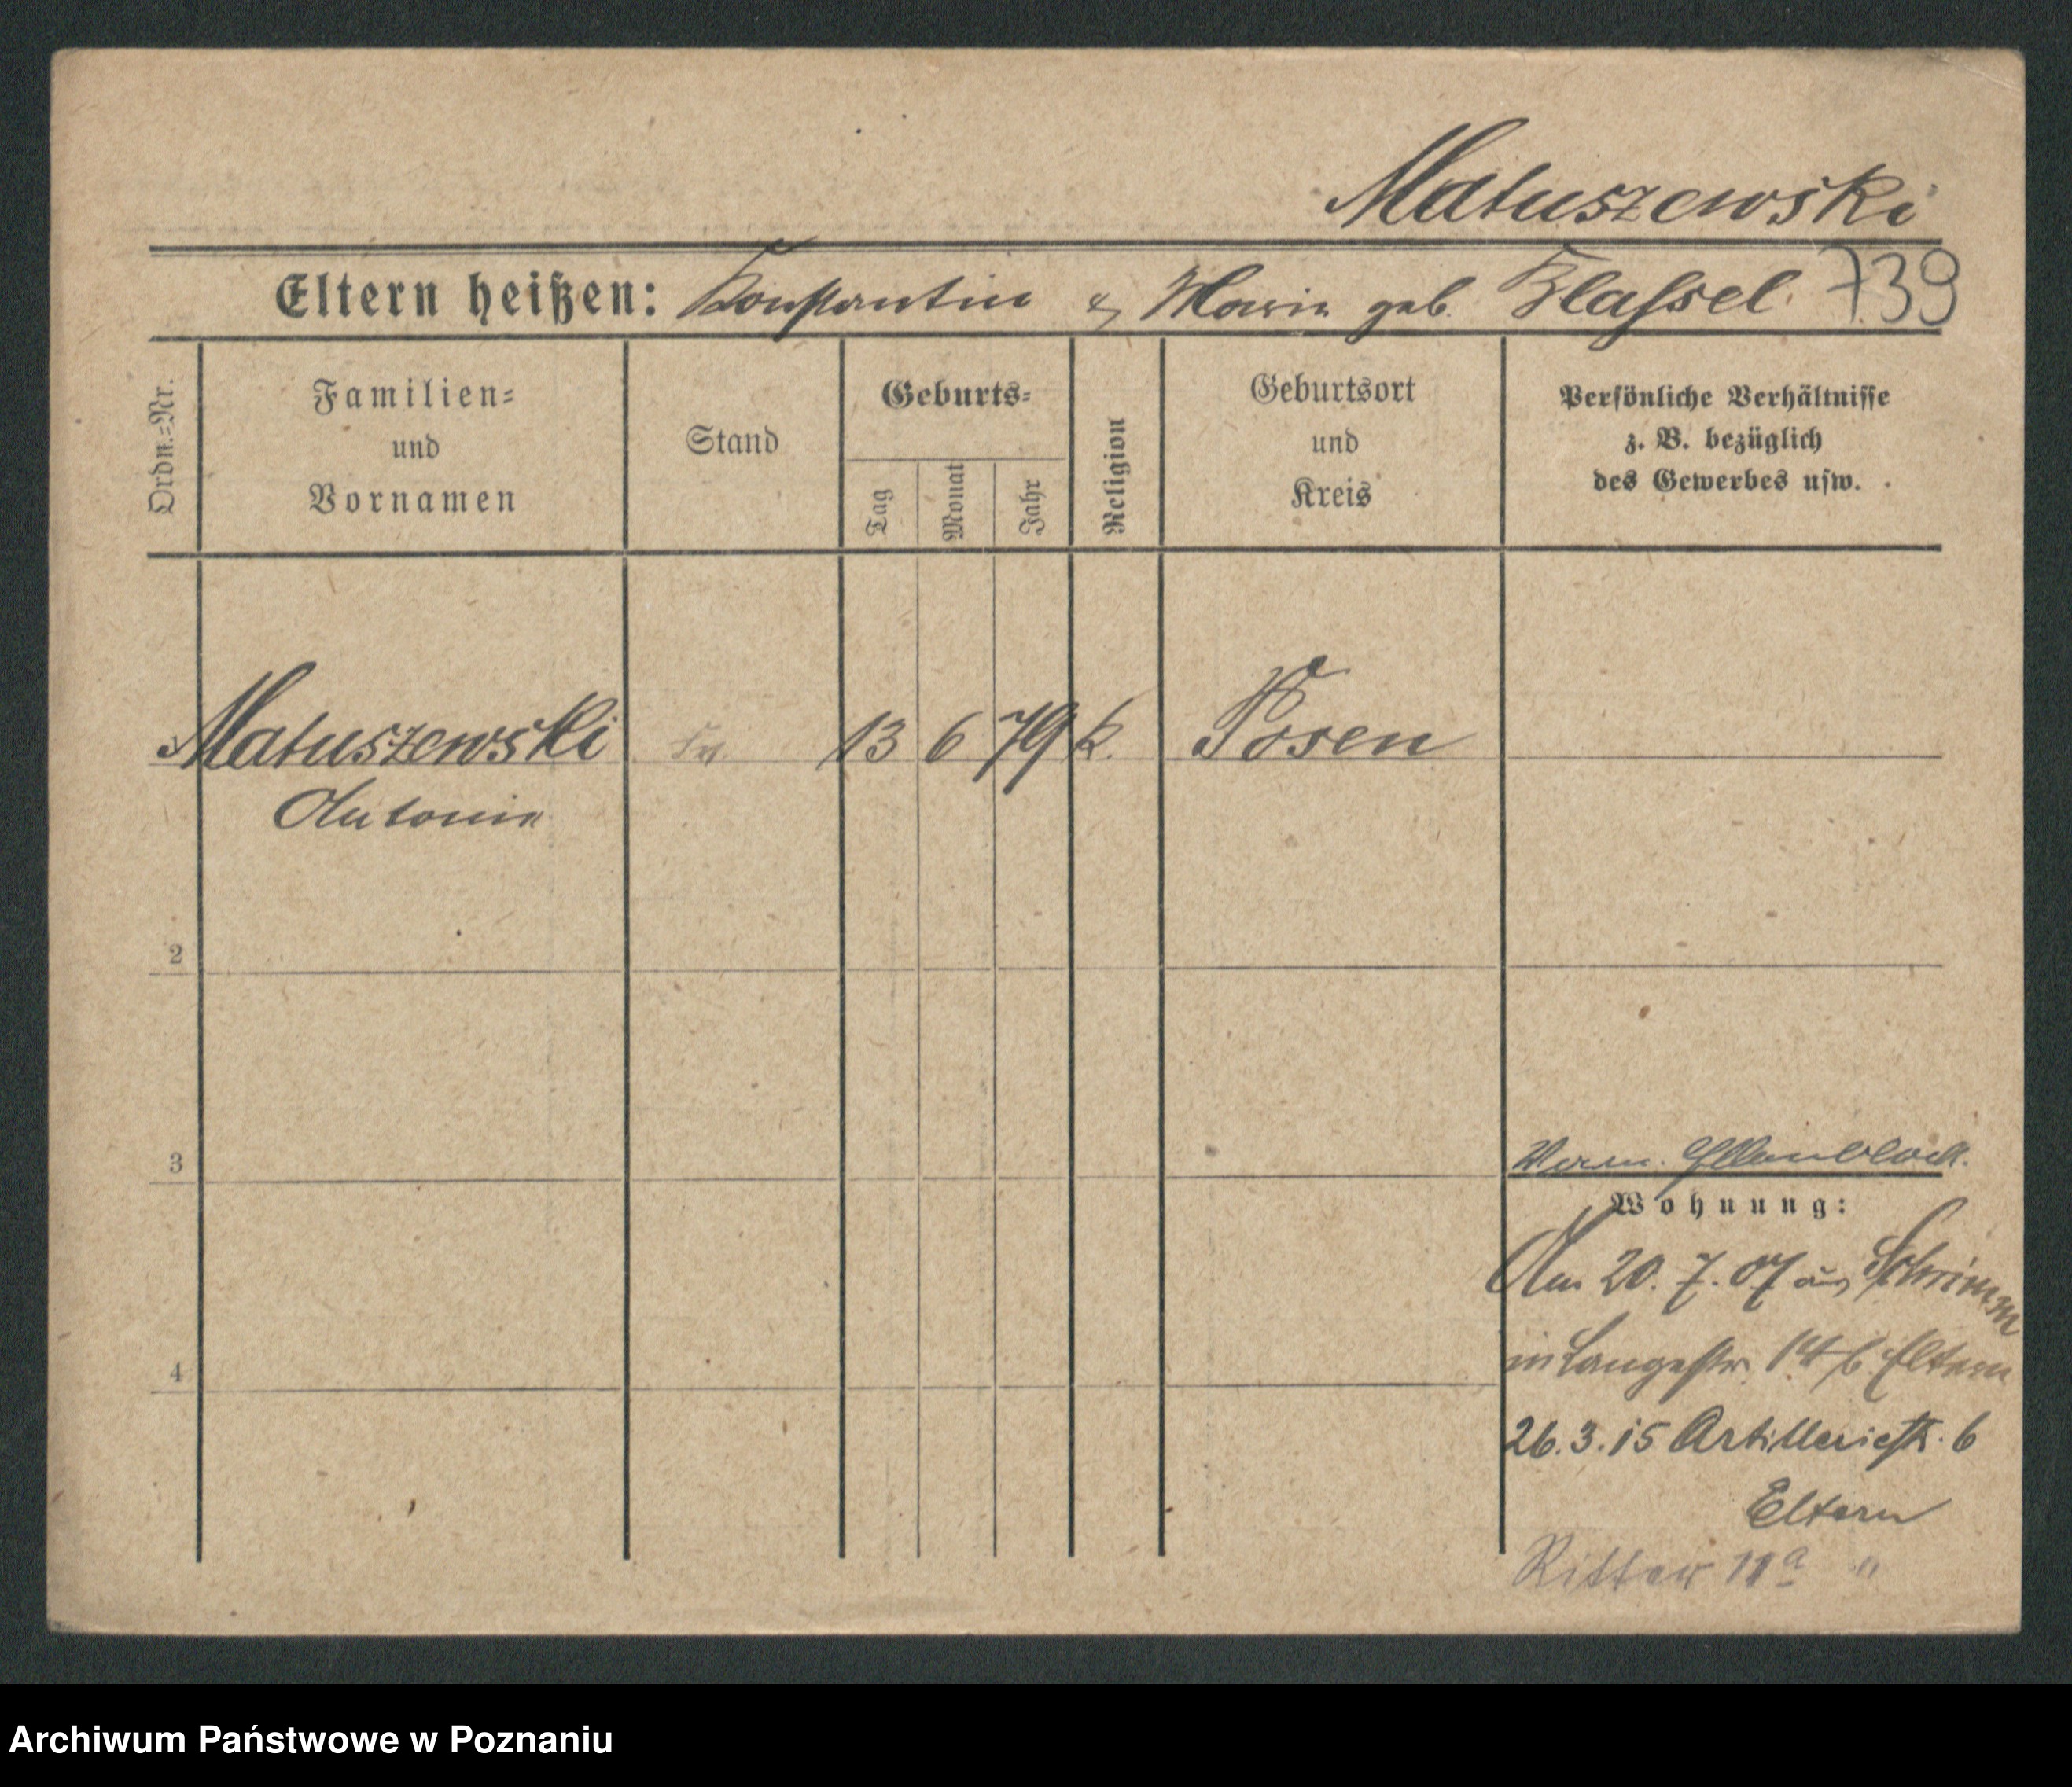 Matuszewski
Eltern heißen: Konstantin & Maria geb. Klassel 739
Ordn.=Nr.
Familien=
und
Vornamen
Stand
Geburts=
Tag
Monat
Jahr
Religion
Geburtsort
und
Kreis
Persönliche Verhältnisse
z. B. bezüglich
des Gewerbes usw.
Matuszewski 13 6 79 k. Posen
Antonie
2
3
4
Wohnung:
Am 20. 7. 07 aus Schrimm
in Langestr. 14 b Eltern
26. 3. 15 Artilleriestr. 6
Eltern
Ritter 11a "
Archiwum Państwowe w Poznaniu